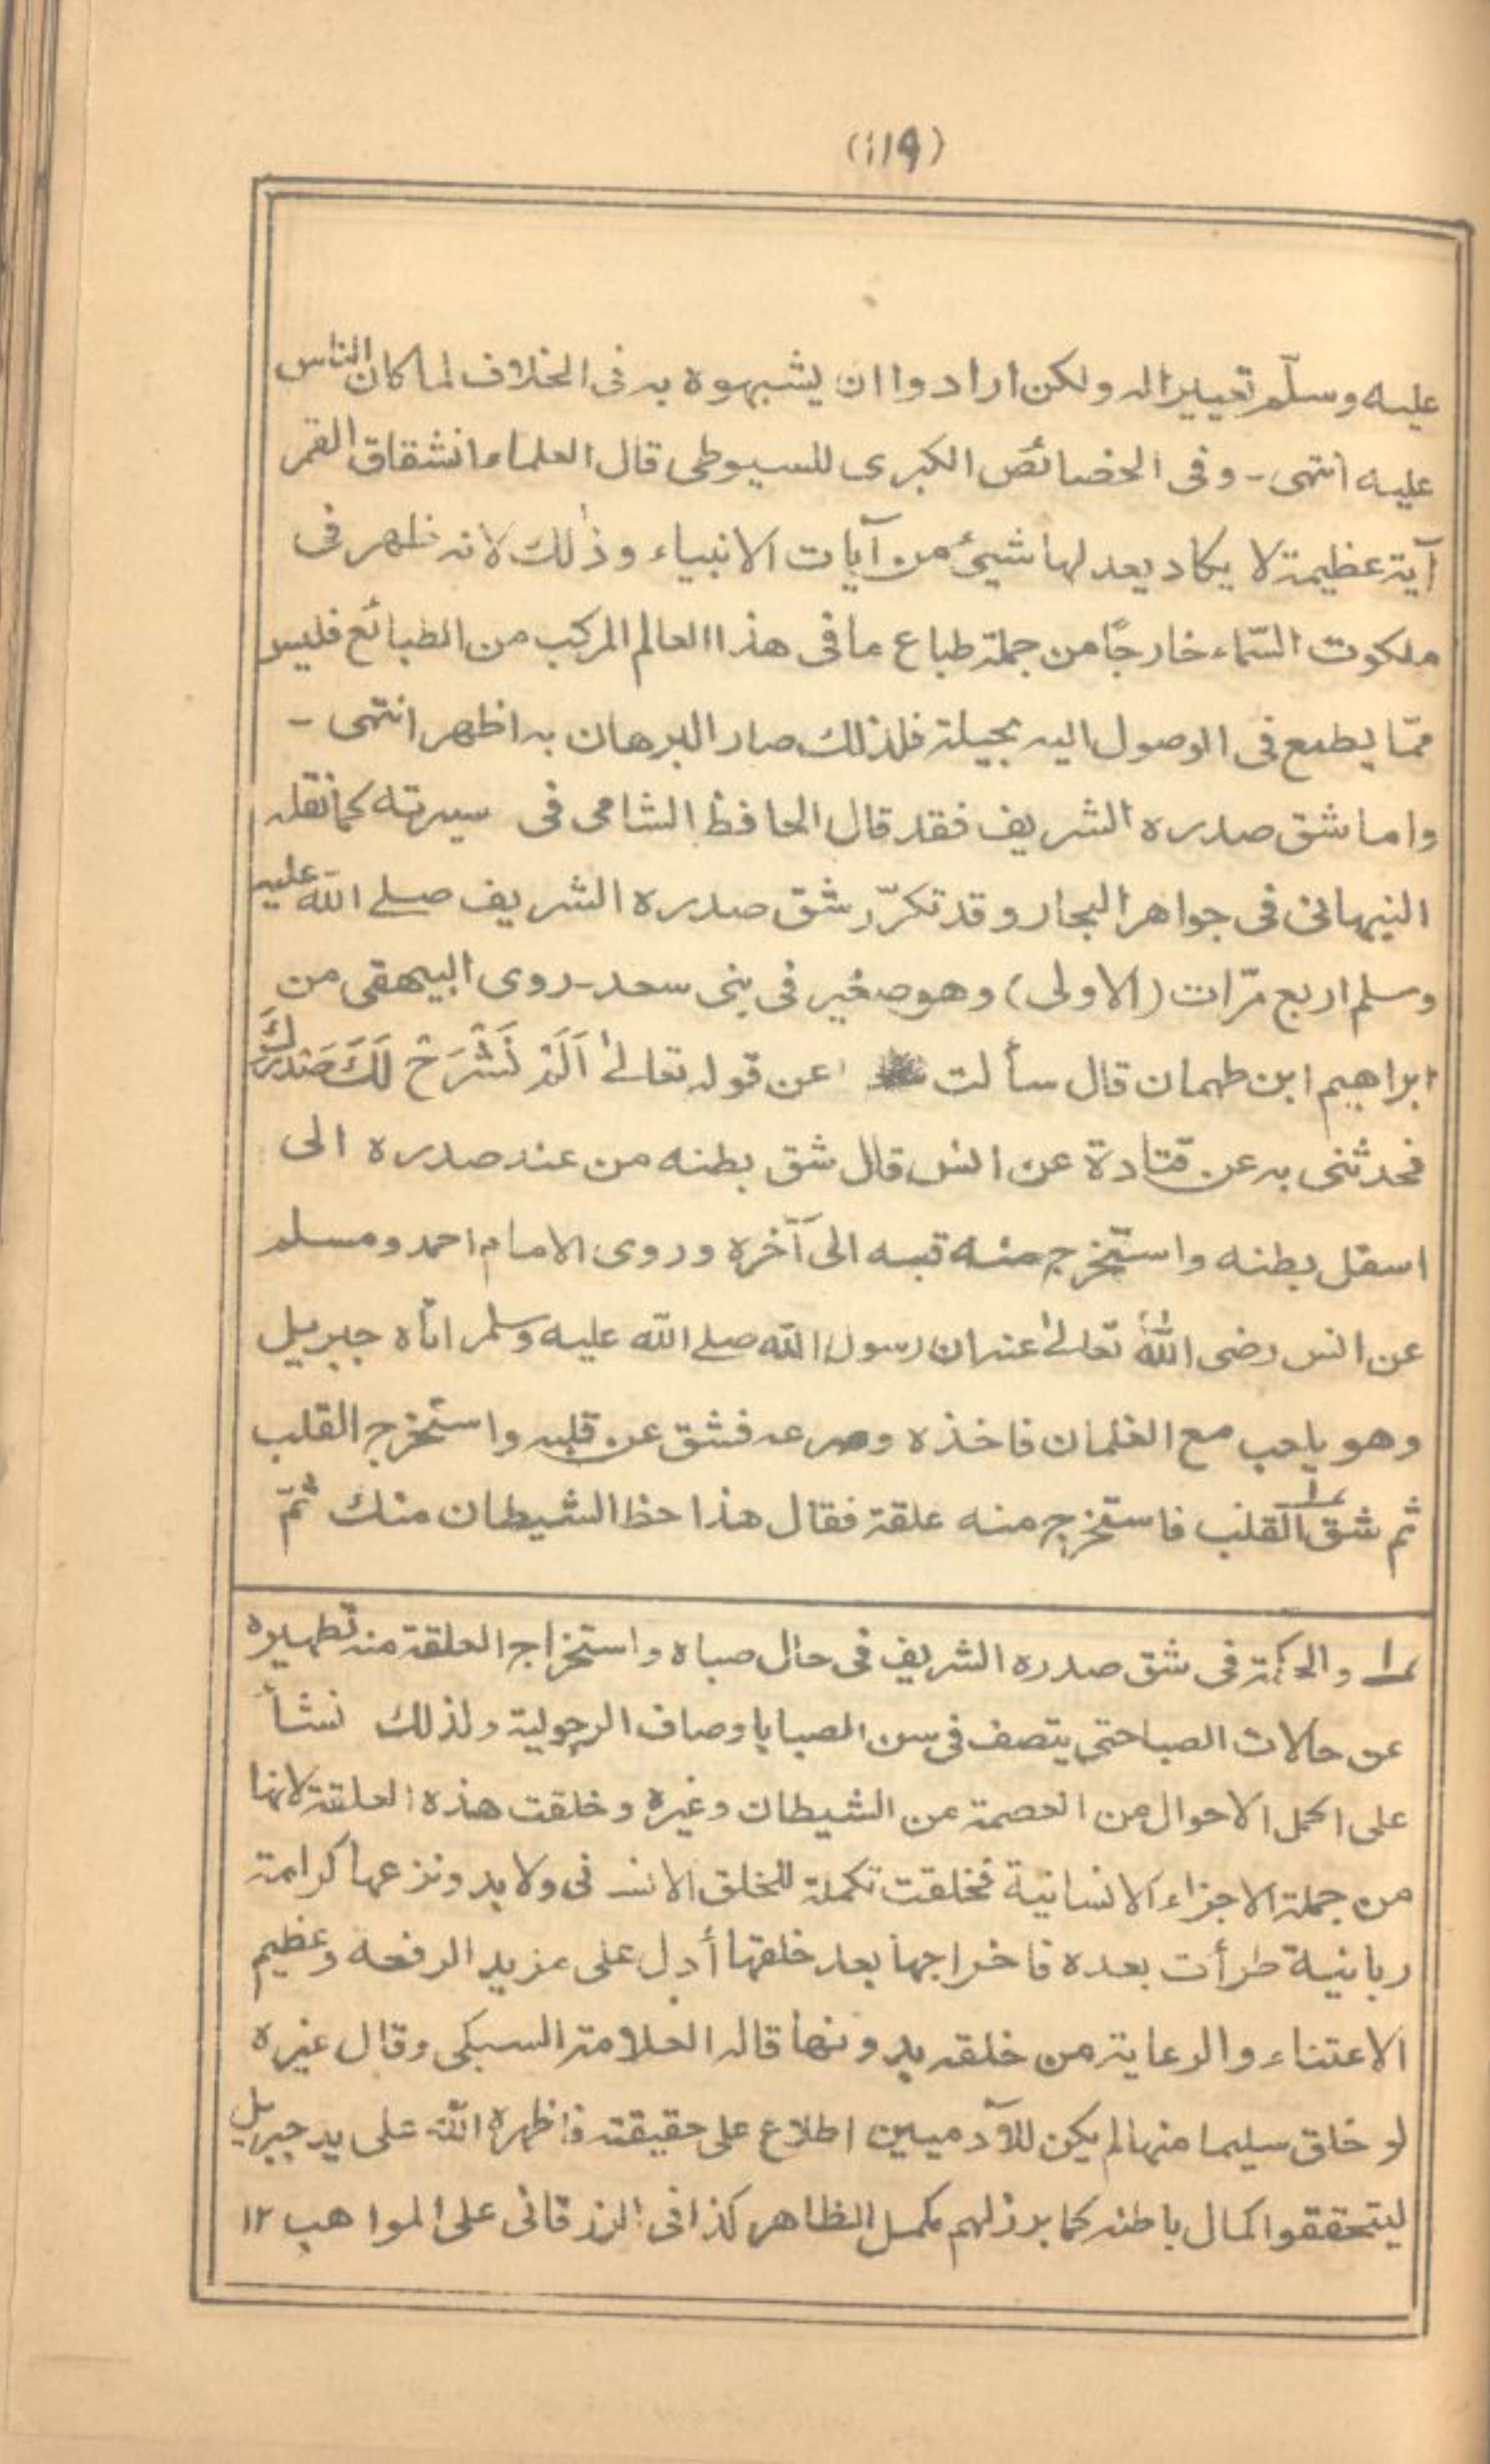 (١١٩)
عليه وسلّم تعييرا له ولكن ارادوا ان يشبهوه به فى الخلاف لما كان الناس
عليه انتهى - وفى الخصائص الكبرى للسيوطى قال العلماء انشقاق القمر
آية عظيمة لا يكاد يعدلها شيئ من آيات الانبياء وذٰلك لانه ظهر فى
ملكوت السّماء خارجًا من جملة طباع ما فى هذا العالم المركب من الطبائع فليس
ممّا يطمع فى الوصول اليه بحيلة فلذلك صار البرهان به اظهر انتهى -
واما شق صدره الشريف فقد قال الحافظ الشامى فى سيرته كما نقله
النبهانى فى جواهر البحار وقد تكرّر شق صدره الشريف صلے الله عليه
وسلم اربع مرّات (الاولى) وهو صغير فى بنى سعد - روى البيهقى من
ابراهيم ابن طهمان قال سألت عن قوله تعالىٰ اَلَمْ نَشْرَحْ لَكَ صَدْرَكَ
فحدثنى به عن قتادة عن انس قال شق بطنه من عند صدره الى
اسفل بطنه واستخرج منه قبسه الى آخره وروى الامام احمد ومسلم
عن انس رضى الله تعالىٰ عنه ان رسول الله صلے الله عليه وسلم اتاه جبريل
وهو يلعب مع الغلمان فاخذه وصرعه فشق عن قلبه واستخرج القلب
ثم شق القلب ١ فاستخرج منه علقة فقال هذا حظ الشيطان منك ثمّ
١ والحكمة فى شق صدره الشريف فى حال صباه واستخراج العلقة منه تطهيره
عن حالات الصبا حتى يتصف فى سن الصبا باوصاف الرجولية ولذلك نشأ
على اكمل الاحوال من العصمة من الشيطان وغيره وخلقت هذه العلقة لانها
من جملة الاجزاء الانسانية فخلقت تكملة للخلق الانسانى ولا بد ونزعها كرامة
ربانية طرأت بعده فاخراجها بعد خلقها أدل على مزيد الرفعه وعظيم
الاعتناء والرعاية من خلقه بدونها قاله العلامة السبكى وقال غيره
لو خلق سليما منها لم يكن للآدميين اطلاع على حقيقته فاظهره الله على يد جبريل
ليتحققوا كمال باطنه كما برز لهم مكمل الظاهر كذا فى الزرقانى على المواهب ١٢